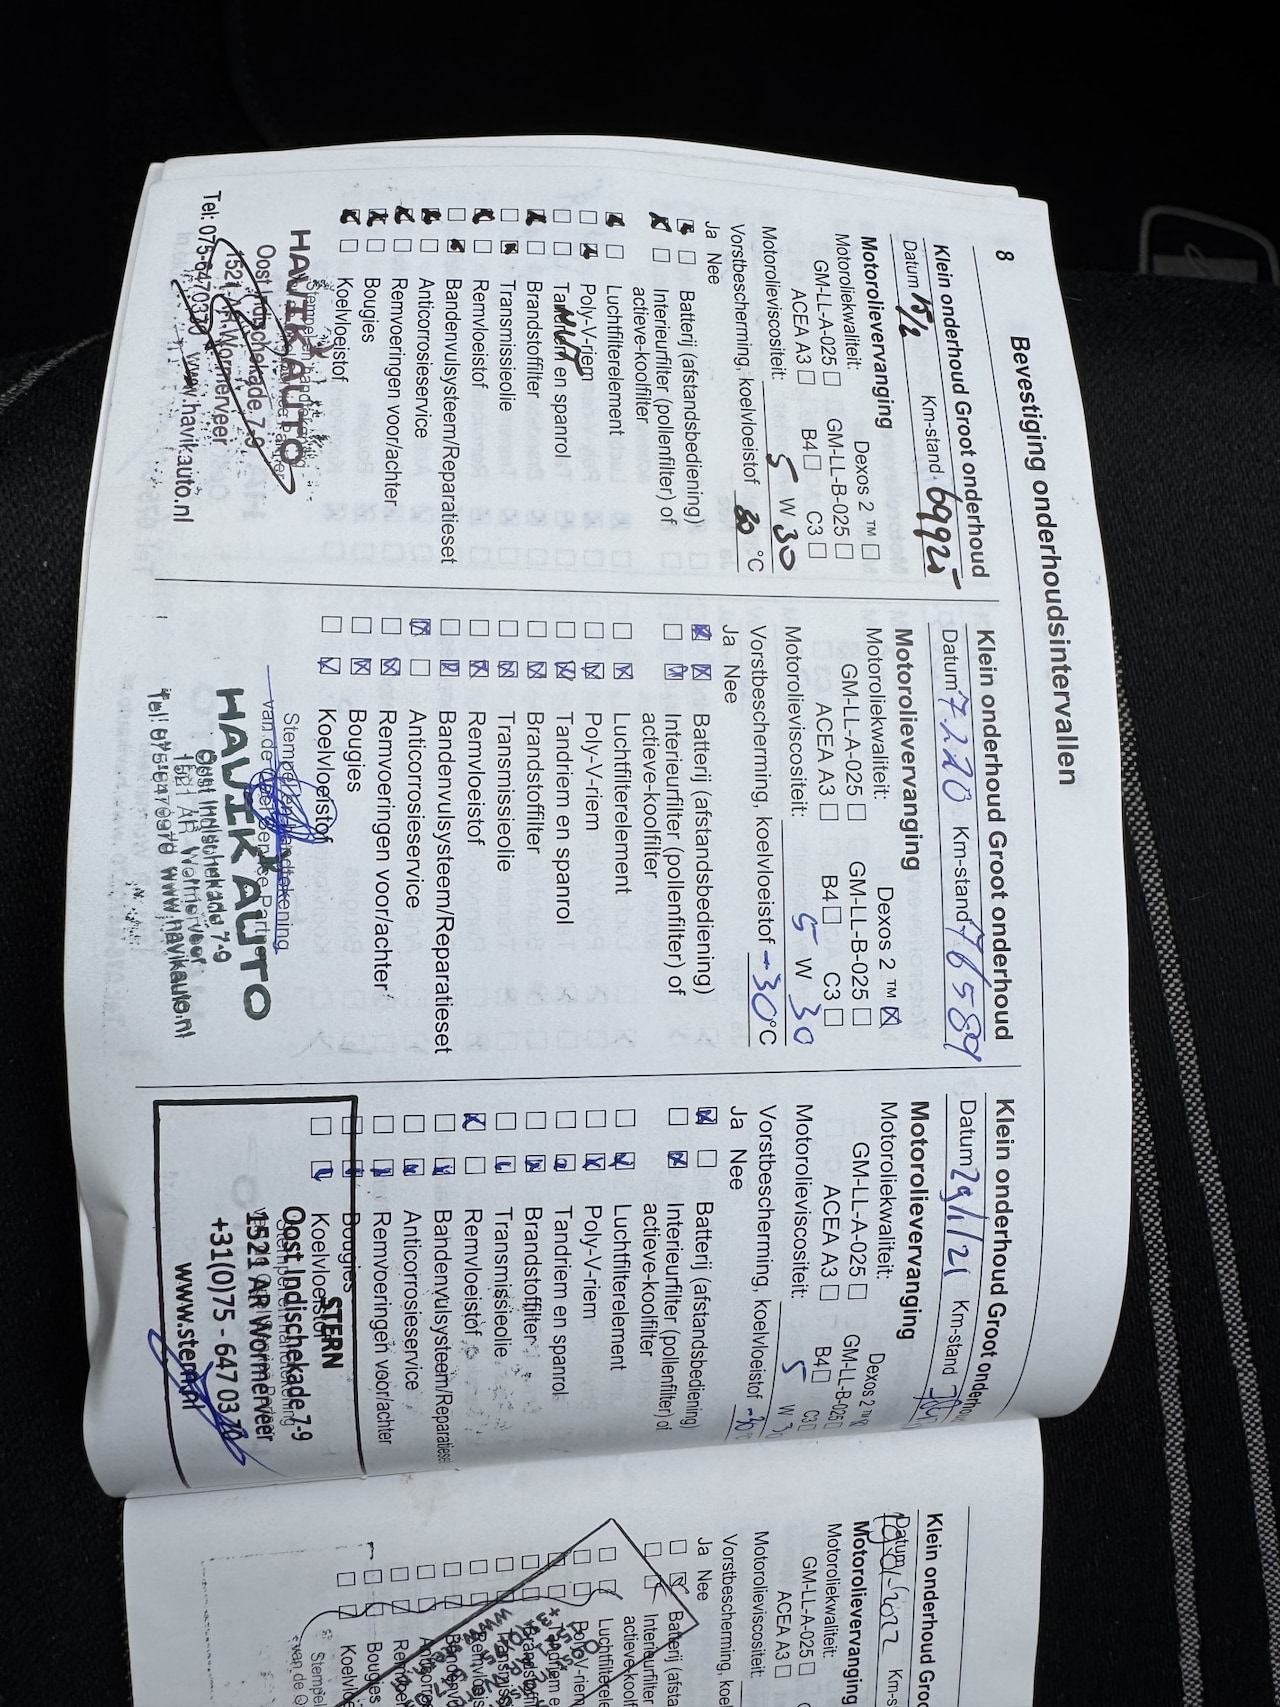 8
Bevestiging onderhoudsintervallen
Klein onderhoud Groot onderhoud
Datum 15/2 Km-stand 69925
Motorolievervanging
Motoroliekwaliteit: Dexos 2 ™
GM-LL-A-025 GM-LL-B-025
ACEA A3 B4 C3
Motorolieviscositeit: 5 W 30
Vorstbescherming, koelvloeistof 30 °C
Ja Nee
Batterij (afstandsbediening)
Interieurfilter (pollenfilter) of
actieve-koolfilter
Luchtfilterelement
Poly-V-riem
Tandriem en spanrol
Brandstoffilter
Transmissieolie
Remvloeistof
Bandenvulsysteem/Reparatieset
Anticorrosieservice
Remvoeringen voor/achter
Bougies
Koelvloeistof
HAVIK AUTO
Oost Indischekade 7-9
1521 AR Wormerveer
Tel: 075-6470370 www.havikauto.nl
Klein onderhoud Groot onderhoud
Datum 7 2 20 Km-stand 76589
Motorolievervanging
Motoroliekwaliteit: Dexos 2 ™
GM-LL-A-025 GM-LL-B-025
ACEA A3 B4 C3
Motorolieviscositeit: 5 W 30
Vorstbescherming, koelvloeistof -30 °C
Ja Nee
Batterij (afstandsbediening)
Interieurfilter (pollenfilter) of
actieve-koolfilter
Luchtfilterelement
Poly-V-riem
Tandriem en spanrol
Brandstoffilter
Transmissieolie
Remvloeistof
Bandenvulsysteem/Reparatieset
Anticorrosieservice
Remvoeringen voor/achter
Bougies
Koelvloeistof
Stempel en handtekening
van de
HAVIK AUTO
Oost Indischekade 7-9
1521 AR Wormerveer
www.havikauto.nl
Klein onderhoud Groot onderhou
Datum 29/1/21 Km-stand
Motorolievervanging
Motoroliekwaliteit: Dexos 2 ™
GM-LL-A-025 GM-LL-B-025
ACEA A3 B4 C3
Motorolieviscositeit: 5 W 30
Vorstbescherming, koelvloeistof
Ja Nee
Batterij (afstandsbediening)
Interieurfilter (pollenfilter) of
actieve-koolfilter
Luchtfilterelement
Poly-V-riem
Tandriem en spanrol
Brandstoffilter
Transmissieolie
Remvloeistof
Bandenvulsysteem/Reparatieset
Anticorrosieservice
Remvoeringen voor/achter
Bougies
Koelvloeistof
STERN
Oost Indischekade 7-9
1521 AR Wormerveer
+31(0)75 - 647 03 70
www.stern.nl
Klein onderhoud Gro
Datum Km-s
Motorolievervanging
Motoroliekwaliteit:
GM-LL-A-025
ACEA A3
Motorolieviscositeit:
Vorstbescherming, koel
Ja Nee
Batterij (afsta
Interieurfilter
actieve-koolf
Luchtfiltere
Bougies
Koelvlo
Stempel
van de O